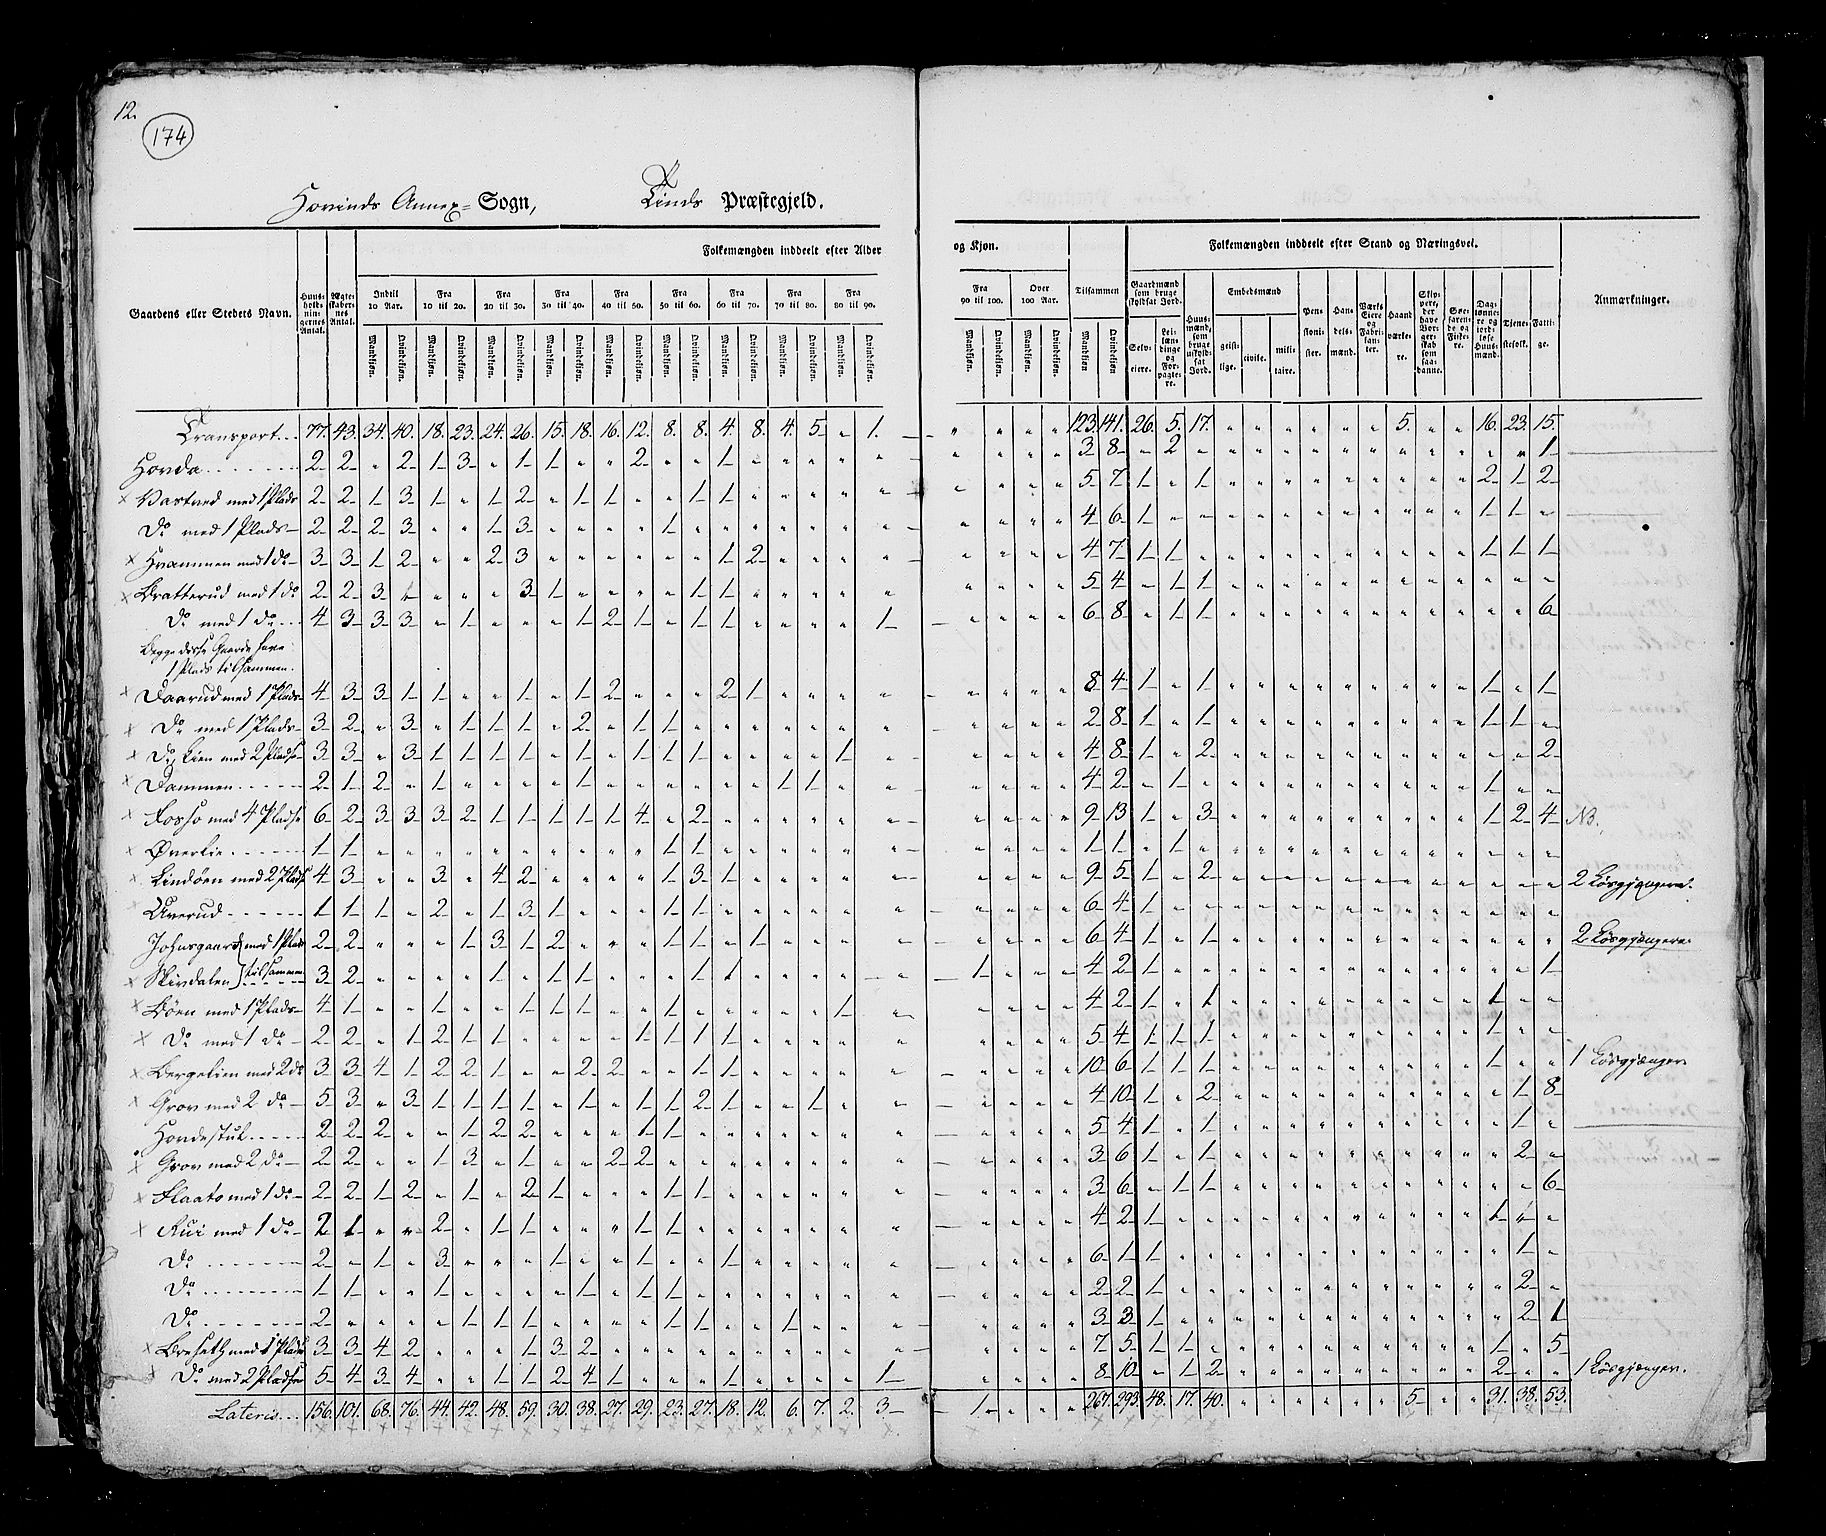 12.
174
Hovinds Annex- Sogn, Tinds Præstegjeld.
Gaardens eller Stedets Navn. Huus-holdnin-gernes Antal. Ægte-skaber-nes Antal. Folkemængden inddeelt efter Alder og Kjøn. Tilsammen Folkemængden inddeelt efter Stand og Næringsvei. Anmærkninger.
Indtil 10 Aar. Fra 10 til 20. Fra 20 til 30. Fra 30 til 40. Fra 40 til 50. Fra 50 til 60. Fra 60 til 70. Fra 70 til 80. Fra 80 til 90. Fra 90 til 100. Over 100 Aar.
Mandkjøn. Qvindekjøn.
Gaardmænd som bruge skyldsat Jord. Selv-eiere. Lei-lændinge og For-pagte-re. Huus-mænd, som bruge uskyld-sat Jord. Embedsmænd geist-lige. civile. mili-taire. Pen-sioni-ster. Han-dels-mænd. Værks Eiere og Fabri-kan-ter. Haand værke-re. Skip-pere, der have Bor-ger-skab som saa-danne. Søe-faren-de og Fiske-re. Dag-lønne-re og jord-løse Huus-mænd. Tjene-stefolk. Fatti-ge.
Transport.. 77. 43. 34. 40. 18. 23. 24. 26. 15. 18. 16. 12. 8. 8. 4. 8. 4. 5. " 1. " " " " 123. 141. 26. 5. 17. " " " " " " 5. " " 16. 23. 15.
Horda 2 2 " 2 1 3 " 1 1 " " 2 " " 1 " " " " " 3 8 " 2 " 1
Vastved med 1 Plads 2 2 1 3 1 " 1 2 " 1 1 " " 1 1 " 5 7 1 " 1 2 1 2
Do med 1 Plads 2 2 2 3 " " 1 3 " " " " 1 " 4 6 1 " " 1 1 "
Hvammen med 1 do 3 3 1 2 " " 2 3 " " " " " " 1 2 4 7 1 1 " 1 1 1
Bratterud med 1 do 2 2 3 " " " " 3 1 " " " " 1 1 " 5 4 " 1 1
Do med 1 do 4 3 3 3 " 1 " " " 1 2 1 " 1 1 " " " " 1 6 8 " 1 1 6
Begge disse Gaarde have
1 Plads tilsammen.
Daarud med 1 Plads 4 3 3 1 1 " " 1 " 1 2 " " " 2 1 8 4 1 " 1 1 " 1
Do med 1 Plads 3 2 " 3 " 1 1 1 " 2 " 1 1 " 2 8 1 " 1 1 1 "
Do Lien med 2 Pladse 3 3 " 3 1 1 1 1 " 1 " 1 1 1 " " " " 1 " 4 8 1 " 2 " " 2
Dammen 2 1 2 " 1 " " " " 1 " " " " " " 1 1 4 2 " 1 " 1 " "
Fosso med 4 Pladse 6 2 3 3 3 2 1 1 1 1 1 4 " 2 9 13 1 " 3 1 2 4 NB.
Øverlie 1 1 " " " " " " " " " " 1 1 1 1 " 1
Lindøen med 2 Pladse 4 3 " " 3 " 4 2 " " " " 1 3 1 9 5 1 " 2 2 Løsgjængere.
Uverud 1 1 1 " 2 " 1 3 1 " " " 1 1 6 4 1
Johnsgaard med 1 Plads 2 2 " " " 1 3 1 2 " " " 1 1 " 1 6 4 1 " 1 2 Løsgjængere
Skirdalen tilsammen 3 2 " " " " 1 " 1 1 " " " 1 1 " " " " " 1 4 2 1 1
Bøen med 1 Plads 4 1 " " 1 " 1 1 " " " " 1 " " " " " 1 4 2 1 " 1 1 " "
Do med 1 do 2 2 " 1 2 1 1 " " " " 1 1 1 1 5 4 1 1 1 1 " "
Bergelien med 2 do 3 3 4 1 2 2 1 " " 2 2 " " 1 1 10 6 1 1 1 1 " " 1 Løsgjænger
Grov med 2 do 5 3 " 3 1 1 1 1 " 1 " 1 1 2 1 " " 1 4 10 1 " 2 1 8
Hordestul 2 2 2 " " 1 2 2 " " " 1 1 5 4 1 " 1 1 "
Grov med 2 do 2 2 " " 1 3 " 1 " " 2 2 3 6 1 " 1 2 "
Flaato med 1 do 2 2 1 2 " 1 " 2 1 " " " 1 1 3 6 " 1 1 6
Rui med 1 do 2 1 " " 2 " 1 1 " " " 1 1 4 2 1 1 1 "
Do 2 " 1 " 3 " " " 1 " 1 " " " 1 6 1 1 1 "
Do 1 1 " " 1 " " " " 1 " 1 1 2 2 1 2 "
Do 2 " " " " 1 1 1 " " " " 1 1 " " 1 3 3 1 2 1
Breseth med 1 Plads 3 3 4 2 " " " 1 3 2 7 5 1 1 1 " 5
Do med 2 Pladse 5 4 3 4 " " 1 1 2 4 1 " " " 1 " " " " 1 8 10 " 1 2 2 " " 1 Løsgjænger.
Lateris... 156. 101. 68. 76. 44. 42. 48. 59. 30. 38. 27. 29. 23. 27. 18. 12. 6. 7. 2. 3 1. " " " 267. 293. 48. 17. 40. " " " " " " 5 " " 31. 38. 53.